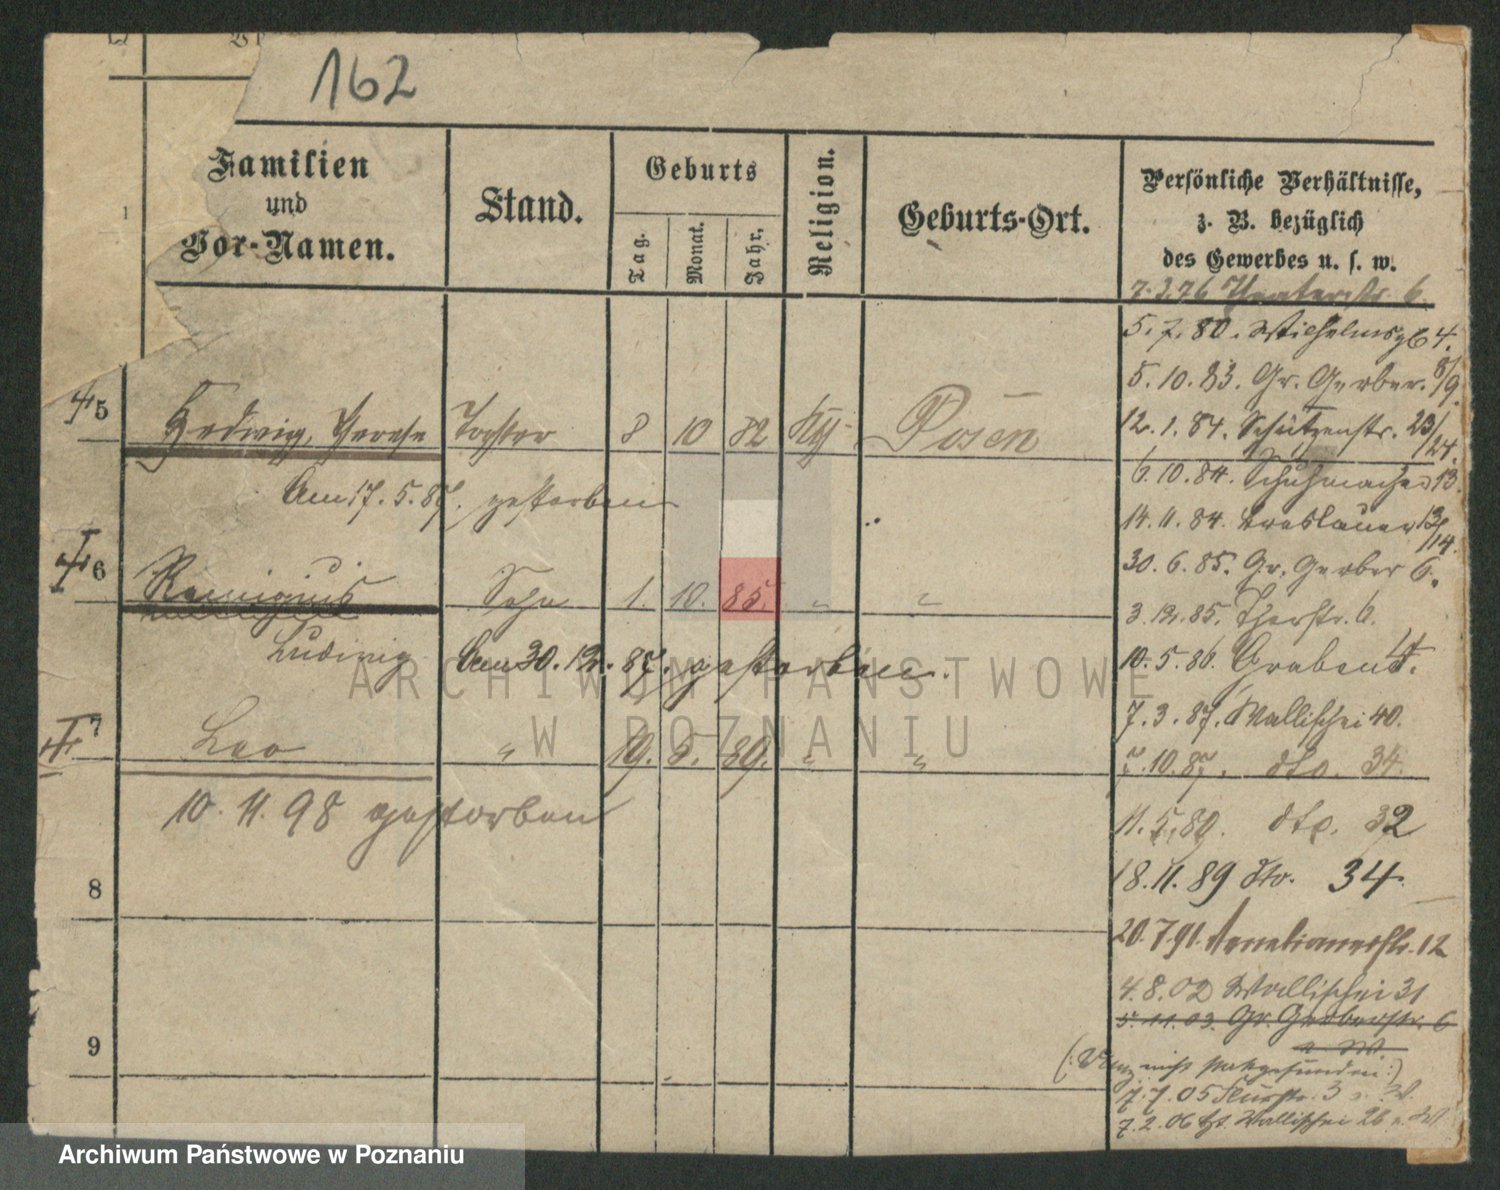 162
Familien
und
Vor-Namen.
Stand.
Geburts
Tag.
Monat.
Jahr.
Religion.
Geburts-Ort.
Persönliche Verhältnisse,
z. B. bezüglich
des Gewerbes u. s. w.
7.3.76 Theaterstr. 6.
5.7.80. Wilhelmspl 4.
5.10.83. Gr. Gerber. 8/9.
5 Hedwig, Therese Tochter 8 10 82 Posen
12.1.84. Schützenstr. 23/24.
Am 17.5.87. gestorben
6.10.84. Schuhmacher 13.
14.11.84. Breslauer 13/14.
6 Remigius Sohn 1. 10. 85. " "
30.6.85. Gr. Gerber 6.
3.12.85. Thorstr. 6.
Ludwig Am 30.12.87. gestorben.
10.5.86. Graben 4.
7.3.87. Wallischei 40.
7 Leo " 19. 5. 89. " "
7.10.87. dto. 34.
10.11.98 gestorben
11.5.89. dto. 32
8
18.11.89 dto. 34.
20.7.91. Venetianerstr. 12
4.8.02 Wallischei 31
5.11.03. Gr. Gerberstr. 6
9
nicht stattgefunden:)
7.7.05 Flurstr. 3
7.2.06 Wallischei 26
ARCHIWUM PAŃSTWOWE
W POZNANIU
Archiwum Państwowe w Poznaniu